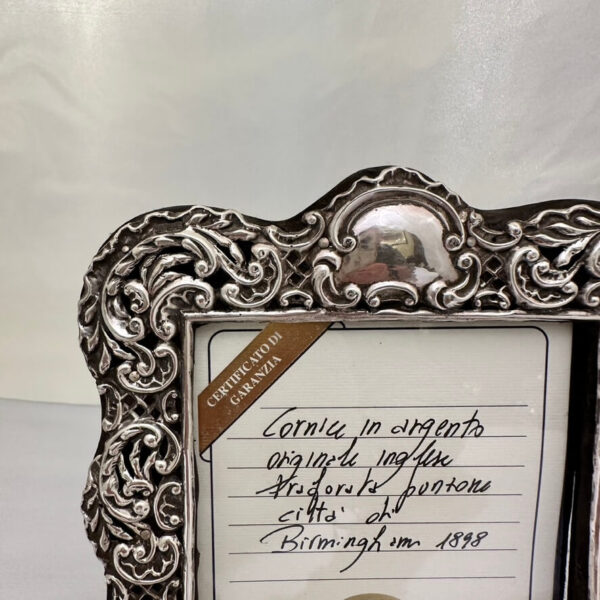 CERTIFICATO DI
GARANZIA
Cornice in argento
originale inglese
traforata punzone
città di
Birmingham 1898